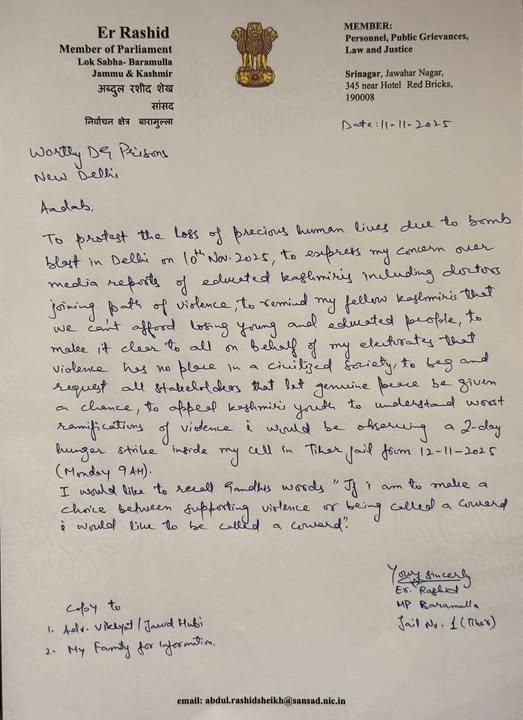 Er Rashid
Member of Parliament
Lok Sabha- Baramulla
Jammu & Kashmir
अब्दुल रशीद शेख
सांसद
निर्वाचन क्षेत्र बारामुल्ला
MEMBER:
Personnel, Public Grievances,
Law and Justice
Srinagar, Jawahar Nagar,
345 near Hotel Red Bricks,
190008
Date: 11-11-2025
Worthy DG Prisons
New Delhi
Aadab,
To protest the loss of precious human lives due to bomb
blast in Delhi on 10th Nov. 2025, to express my concern over
media reports of educated Kashmiris including doctors
joining path of violence, to remind my fellow Kashmiris that
we can't afford losing young and educated people, to
make it clear to all on behalf of my electorates that
violence has no place in a civilized society, to beg and
request all stakeholders that let genuine peace be given
a chance, to appeal Kashmiri youth to understand worst
ramifications of violence i would be observing a 2-day
hunger strike inside my cell in Tihar jail from 12-11-2025
(Monday 9AM).
I would like to recall Gandhis words "If i am to make a
choice between supporting violence or being called a coward
i would like to be called a coward".
Yours sincerely
Er. Rashid
MP Baramulla
Jail No. 1 (Tihar)
Copy to
1. Adv. Vikhyat / Jawd Hubi
2. My Family for Information.
email: abdul.rashidsheikh@sansad.nic.in